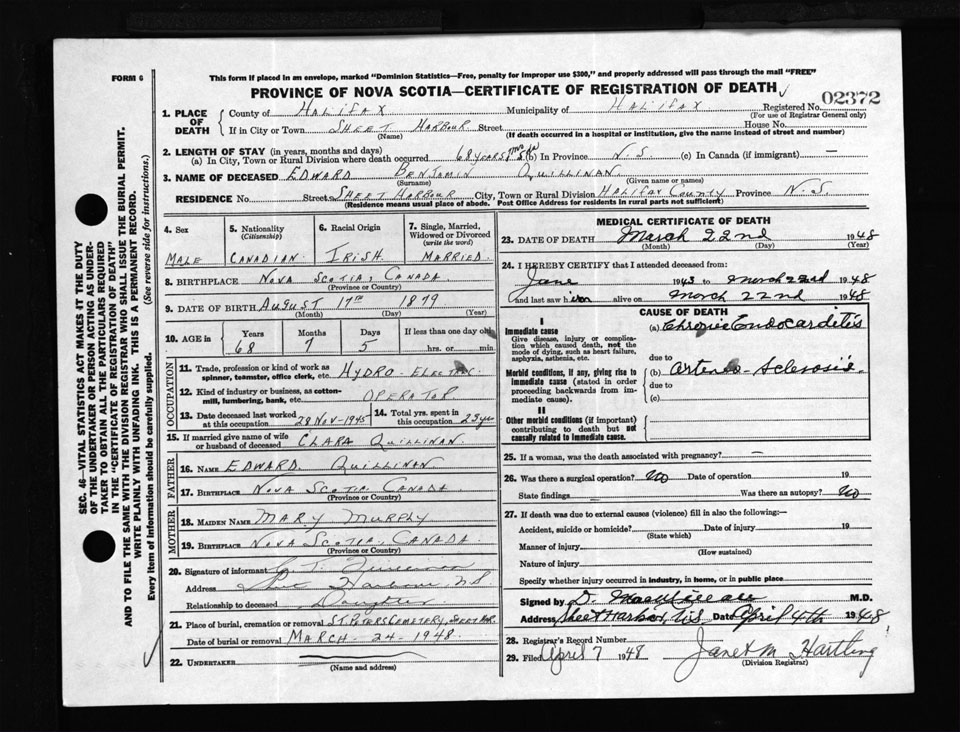 FORM 6
This form if placed in an envelope, marked "Dominion Statistics—Free, penalty for improper use $300," and properly addressed will pass through the mail "FREE"
PROVINCE OF NOVA SCOTIA—CERTIFICATE OF REGISTRATION OF DEATH
SEC. 46—VITAL STATISTICS ACT MAKES IT THE DUTY
OF THE UNDERTAKER OR PERSON ACTING AS UNDER-
TAKER TO OBTAIN ALL THE PARTICULARS REQUIRED
IN THE "CERTIFICATE OF REGISTRATION OF DEATH"
AND TO FILE THE SAME WITH THE DIVISION REGISTRAR WHO SHALL ISSUE THE BURIAL PERMIT.
WRITE PLAINLY WITH UNFADING INK. THIS IS A PERMANENT RECORD.
Every item of information should be carefully supplied. (See reverse side for instructions.)
1. PLACE OF DEATH
County of HALIFAX Municipality of HALIFAX Registered No. 02372
(For use of Registrar General only)
If in City or Town SHEET HARBOUR Street House No.
(Name) (If death occurred in a hospital or institution, give the name instead of street and number)
2. LENGTH OF STAY (in years, months and days)
(a) In City, Town or Rural Division where death occurred 68 YEARS (b) In Province N.S. (c) In Canada (if immigrant) —
3. NAME OF DECEASED EDWARD BENJAMIN QUILLINAN
(Surname) (Given name or names)
RESIDENCE No. Street SHEET HARBOUR City, Town or Rural Division HALIFAX COUNTY Province N.S.
(Residence means usual place of abode. Post Office Address for residents in rural parts not sufficient)
4. Sex
MALE
5. Nationality
(Citizenship)
CANADIAN
6. Racial Origin
IRISH
7. Single, Married,
Widowed or Divorced
(write the word)
MARRIED
8. BIRTHPLACE NOVA SCOTIA, CANADA
(Province or Country)
9. DATE OF BIRTH AUGUST 17TH 1879
(Month) (Day) (Year)
10. AGE in
Years Months Days If less than one day old
68 7 5 hrs. or min.
OCCUPATION
11. Trade, profession or kind of work as
spinner, teamster, office clerk, etc. HYDRO-ELECTRIC
12. Kind of industry or business, as cotton-
mill, lumbering, bank, etc. OPERATOR
13. Date deceased last worked
at this occupation 28 NOV-1945
14. Total yrs. spent in
this occupation 23 yrs
15. If married give name of wife
or husband of deceased CLARA QUILLINAN
FATHER
16. NAME EDWARD QUILLINAN
17. BIRTHPLACE NOVA SCOTIA CANADA
(Province or Country)
MOTHER
18. MAIDEN NAME MARY MURPHY
19. BIRTHPLACE NOVA SCOTIA, CANADA
(Province or Country)
20. Signature of informant
Address Sheet Harbour N.S.
Relationship to deceased Daughter
21. Place of burial, cremation or removal ST. PETERS CEMETERY, SHEET HBR.
Date of burial or removal MARCH-24-1948
22. UNDERTAKER
(Name and address)
MEDICAL CERTIFICATE OF DEATH
23. DATE OF DEATH March 22nd 1948
(Month) (Day) (Year)
24. I HEREBY CERTIFY that I attended deceased from:
June 1943 to March 22nd 1948
and last saw him alive on March 22nd 1948
CAUSE OF DEATH
I
Immediate cause
Give disease, injury or complica-
tion which caused death, not the
mode of dying, such as heart failure,
asphyxia, asthenia, etc.
(a) Chronic Endocarditis
due to
Morbid conditions, if any, giving rise to
immediate cause (stated in order
proceeding backwards from im-
mediate cause).
(b) Arterio-Sclerosis
due to
(c)
II
Other morbid conditions (if important)
contributing to death but not
causally related to immediate cause.
25. If a woman, was the death associated with pregnancy? —
26. Was there a surgical operation? No Date of operation 19
State findings Was there an autopsy? No
27. If death was due to external causes (violence) fill in also the following:—
Accident, suicide or homicide? Date of injury 19
(State which)
Manner of injury
(How sustained)
Nature of injury
Specify whether injury occurred in industry, in home, or in public place
Signed by D. M.D.
Address Sheet Harbor, N.S. Date April 4th 1948
28. Registrar's Record Number
29. Filed April 7 1948 Janet M. Hartling
(Division Registrar)